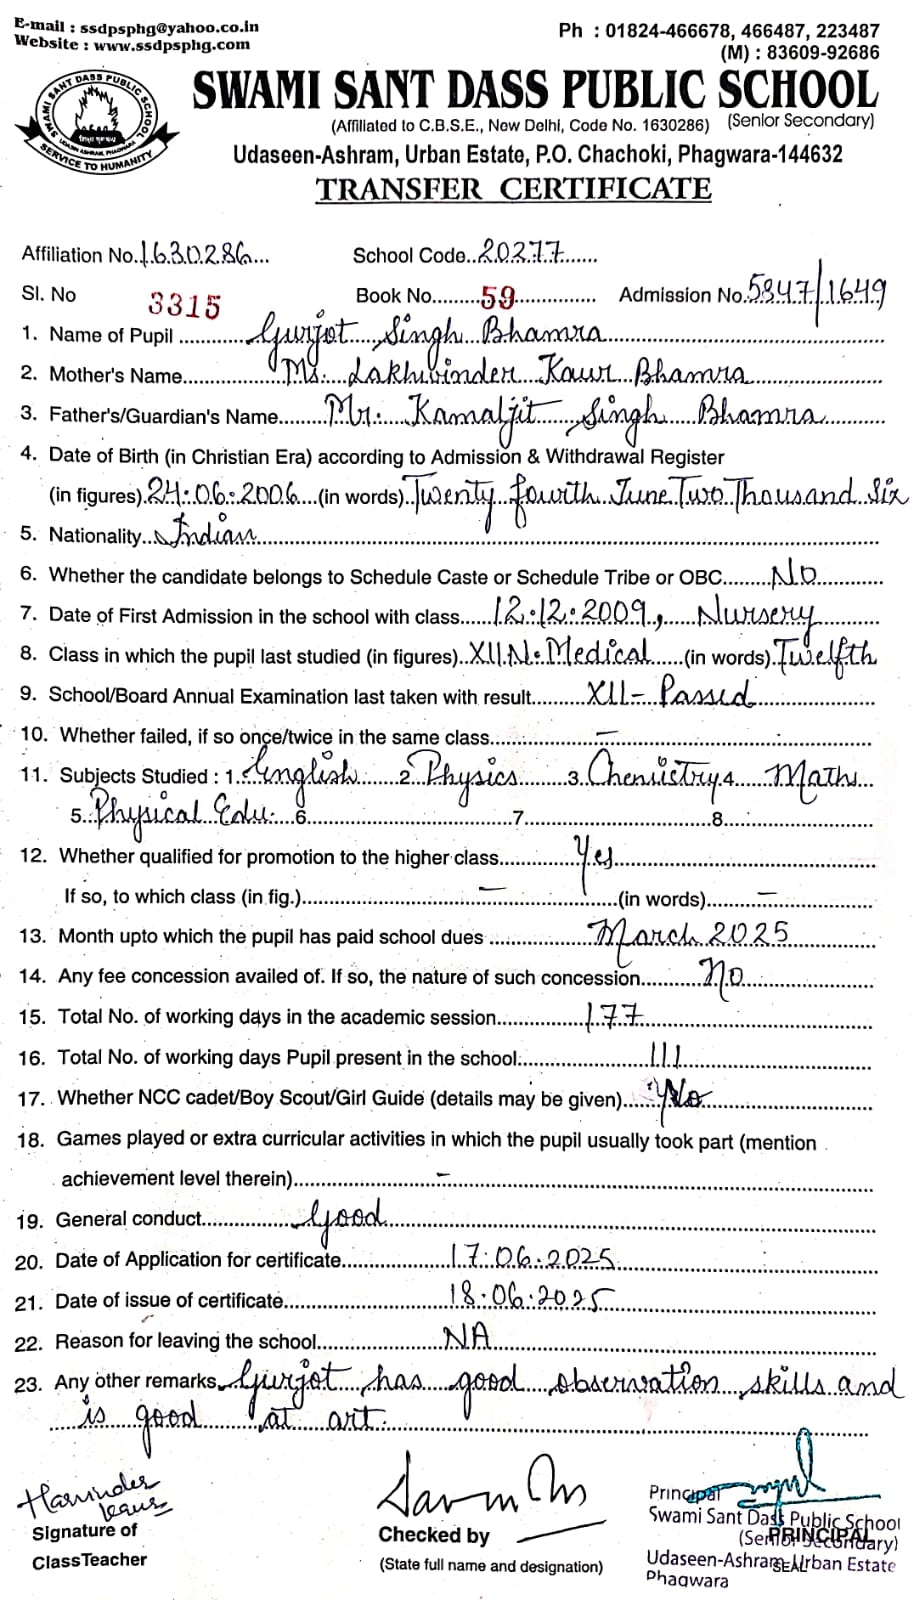 E-mail : ssdpsphg@yahoo.co.in
Website : www.ssdpsphg.com
Ph : 01824-466678, 466487, 223487
(M) : 83609-92686
SWAMI SANT DASS PUBLIC SCHOOL
(Affiliated to C.B.S.E., New Delhi, Code No. 1630286) (Senior Secondary)
SWAMI SANT DASS PUBLIC SCHOOL
UDASIN ASHRAM, PHAGWARA
SERVICE TO HUMANITY
Udaseen-Ashram, Urban Estate, P.O. Chachoki, Phagwara-144632
TRANSFER CERTIFICATE
Affiliation No. 1630286 School Code 20277
Sl. No 3315 Book No. 59 Admission No. 5847/1649
1. Name of Pupil Gurjot Singh Bhamra
2. Mother's Name Ms. Lakhvinder Kaur Bhamra
3. Father's/Guardian's Name Mr. Kamaljit Singh Bhamra
4. Date of Birth (in Christian Era) according to Admission & Withdrawal Register
(in figures) 24.06.2006 (in words) Twenty fourth June Two Thousand Six
5. Nationality Indian
6. Whether the candidate belongs to Schedule Caste or Schedule Tribe or OBC No
7. Date of First Admission in the school with class 12.12.2009, Nursery
8. Class in which the pupil last studied (in figures) XII N. Medical (in words) Twelfth
9. School/Board Annual Examination last taken with result XII - Passed
10. Whether failed, if so once/twice in the same class —
11. Subjects Studied : 1. English 2 Physics 3 Chemistry 4 Maths
5 Physical Edu. 6 7 8
12. Whether qualified for promotion to the higher class Yes
If so, to which class (in fig.) — (in words) —
13. Month upto which the pupil has paid school dues March 2025
14. Any fee concession availed of. If so, the nature of such concession No
15. Total No. of working days in the academic session 177
16. Total No. of working days Pupil present in the school 111
17. Whether NCC cadet/Boy Scout/Girl Guide (details may be given) No
18. Games played or extra curricular activities in which the pupil usually took part (mention
achievement level therein) -
19. General conduct Good
20. Date of Application for certificate 17.06.2025
21. Date of issue of certificate 18.06.2025
22. Reason for leaving the school NA
23. Any other remarks Gurjot has good observation skills and
is good at art.
Harvinder
Kaur
Signature of
ClassTeacher
Checked by
(State full name and designation)
Principal
Swami Sant Dass Public School
(Senior Secondary)
PRINCIPAL
Udaseen-Ashram, Urban Estate
SEAL
Phagwara